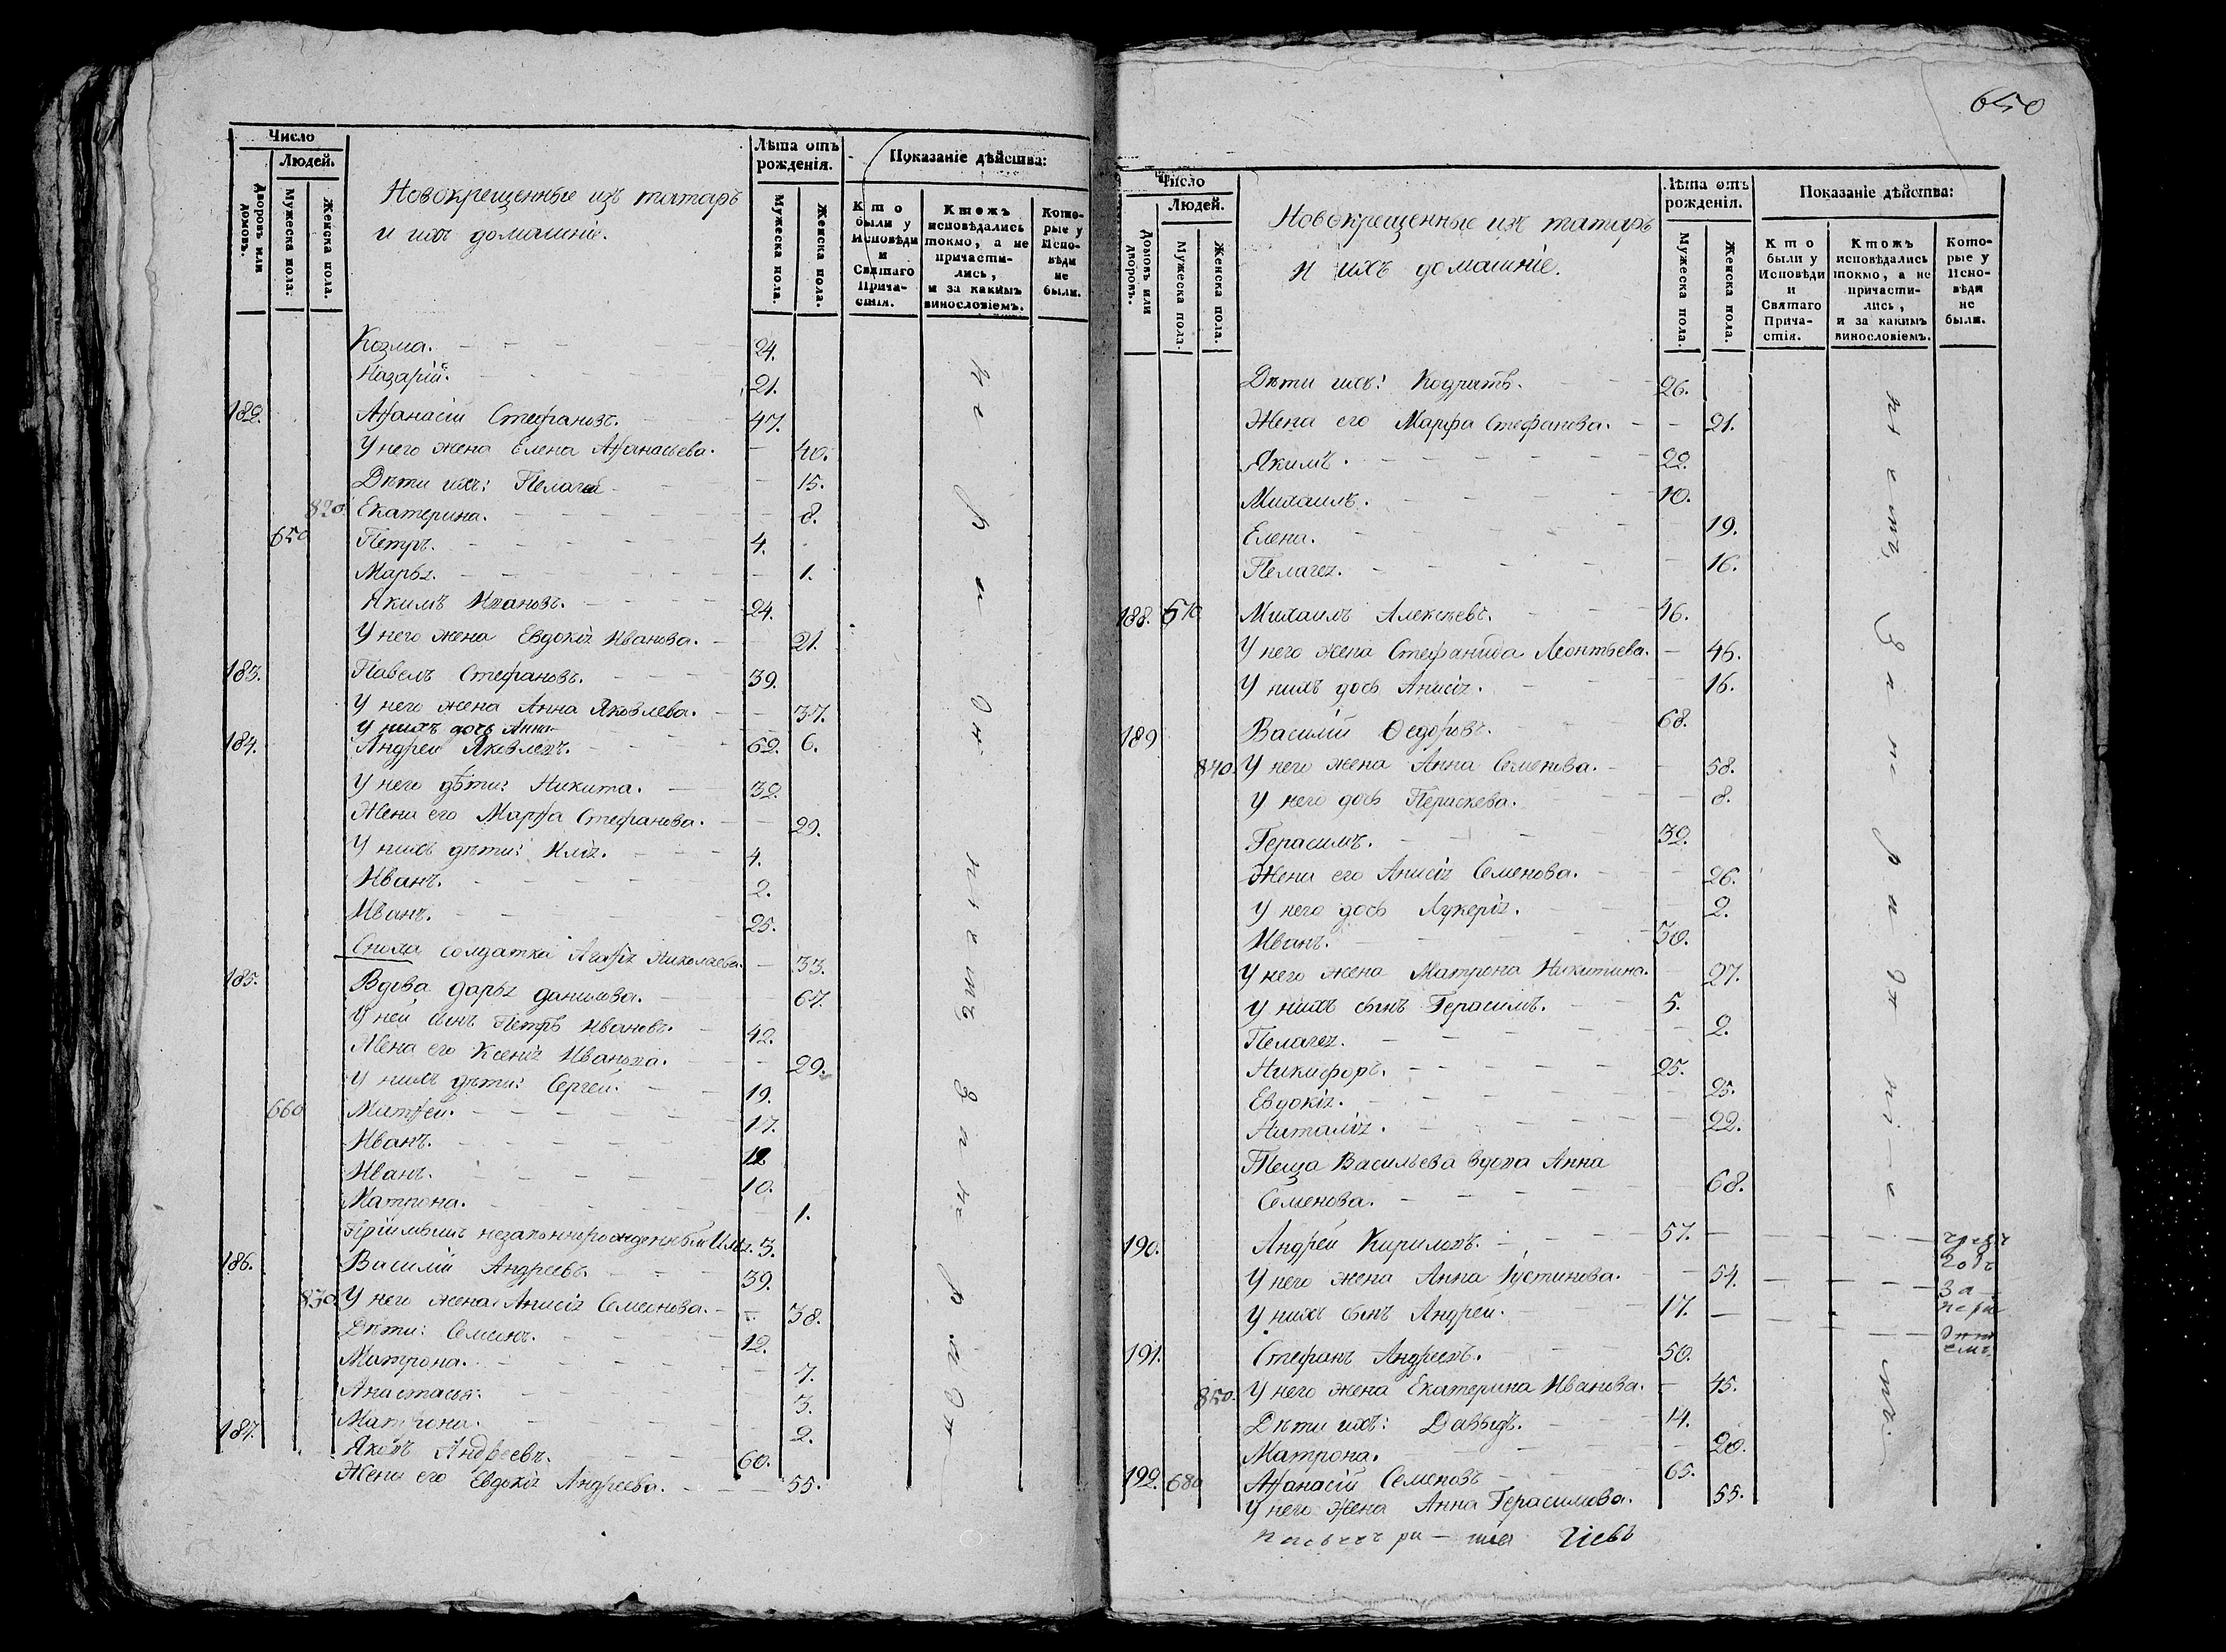 Число
Людей.
Дворовъ или домовъ.
Мужеска пола.
Женска пола.
Новокрещенные изъ татаръ
и ихъ домашніе.
Лѣта отъ рожденія.
Мужеска пола.
Женска пола.
Показаніе дѣйства:
Кто были у Исповѣди и Святаго Прича-стія.
Ктожъ исповѣдались токмо, а не причасти-лись, и за какимъ винословіемъ.
Кото-рые у Испо-вѣди не были.
Козма. 24.
Назарій. 21.
182. Аѳанасій Стефановъ. 47.
У него жена Елена Аѳанасьева. 40.
Дѣти ихъ: Пелагея 15.
820. Екатерина. 8.
650 Петръ. 4.
Марья. 1.
Якимъ Ивановъ. 24.
У него жена Евдокія Иванова. 21.
183. Павелъ Стефановъ. 39.
У него жена Анна Яковлева. 37.
У нихъ дочь Анна 6.
184. Андрей Яковлевъ. 62.
У него дѣти: Никита. 32.
Жена его Марѳа Стефанова. 29.
У нихъ дѣти: Илія. 4.
Иванъ. 2.
Иванъ. 25.
Сноха солдатка Агаѳія Николаева. 33.
185. Вдова дарья данилова. 67.
У ней сынъ Петръ Ивановъ. 42.
Жена его Ксенія Иванова. 29.
У нихъ дѣти: Сергей. 19.
660 Матѳей. 17.
Иванъ. 12
Иванъ. 10.
Матрона. 1.
Пріимышъ незаконнорожденный Илья. 3.
186. Василій Андреевъ. 39.
830. У него жена Анисія Семенова. 38.
Дѣти: Семенъ. 12.
Матрона. 7.
Анастасія. 3.
Матрона. 2.
187. Яковъ Андреевъ. 60.
Жена его Евдокія Андреева. 55.
650
Число
Людей.
Домовъ или дворовъ.
Мужеска пола.
Женска пола.
Новокрещенные изъ татаръ
и ихъ домашніе.
Лѣта отъ рожденія.
Мужеска пола.
Женска пола.
Показаніе дѣйства:
Кто были у Исповѣди и Святаго Прича-стія.
Ктожъ исповѣдались токмо, а не причасти-лись, и за какимъ винословіемъ.
Кото-рые у Испо-вѣди не были.
Дѣти ихъ: Кодратъ. 26.
Жена его Марфа Стефанова. 21.
Якимъ. 22.
Михаилъ. 10.
Елена. 19.
Пелагея. 16.
188. 670 Михаилъ Алексѣевъ. 46.
У него жена Стефанида Леонтьева. 46.
У нихъ дочь Анисія. 16.
189 Василій Ѳедоровъ. 68.
840. У него жена Анна Семенова. 58.
У него дочь Параскева. 8.
Герасимъ. 32.
Жена его Анисія Семенова. 26.
У него дочь Лукерія. 2.
Иванъ. 30.
У него жена Матрона Никитина. 27.
У нихъ сынъ Герасимъ. 5.
Пелагея. 2.
Никифоръ. 25.
Евдокія. 25.
Наталія. 22.
Теща Васильева вдова Анна
Семенова. 68.
190. Андрей Кириловъ. 57.
У него жена Анна Іустинова. 54.
У нихъ сынъ Андрей. 17.
191. Стефанъ Андреевъ. 50.
850. У него жена Екатерина Иванова. 45.
Дѣти ихъ: Давыдъ. 14.
Матрона. 20.
192. 680 Аѳанасій Семеновъ 65.
У него жена Анна Герасимова. 55.